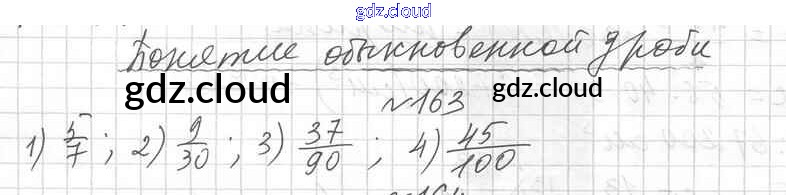 gdz.cloud
Понятие обыкновенной дроби
gdz.cloud gdz.cloud
№163
1) 5/7 ; 2) 9/30 ; 3) 37/90 ; 4) 45/100